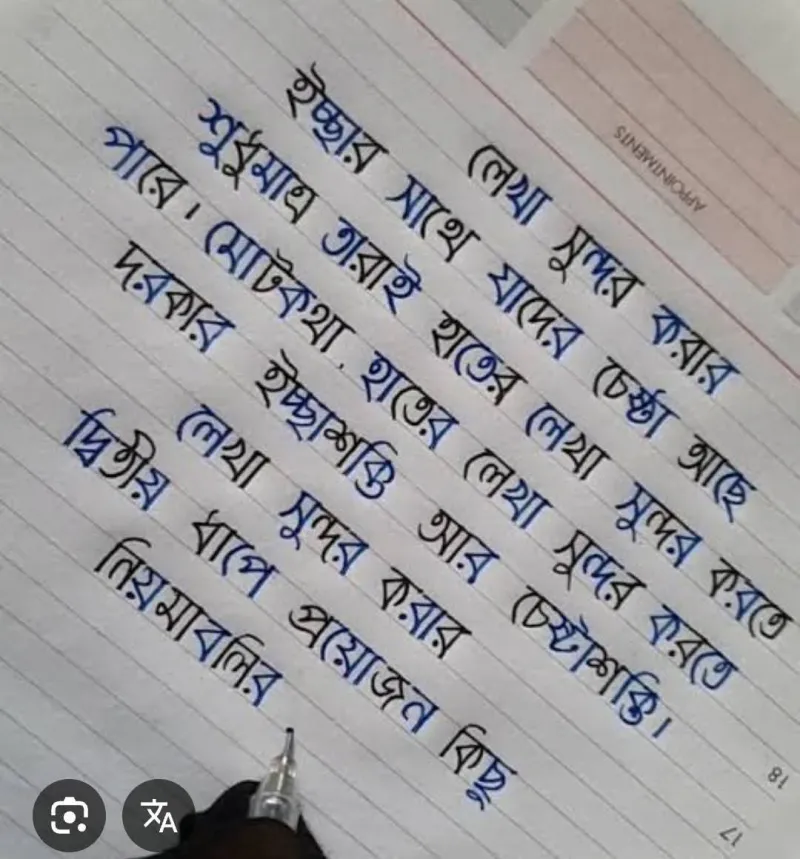 APPOINTMENTS
লেখা সুন্দর করার
ইচ্ছার সাথে যাদের চেষ্টা আছে
শুধুমাত্র তারাই হাতের লেখা সুন্দর করতে
পারে। মোটকথা, হাতের লেখা সুন্দর করতে
দরকার ইচ্ছাশক্তি আর চেষ্টাশক্তি।
লেখা সুন্দর করার
দ্বিতীয় ধাপে প্রয়োজন কিছু
নিয়মাবলির
18
17